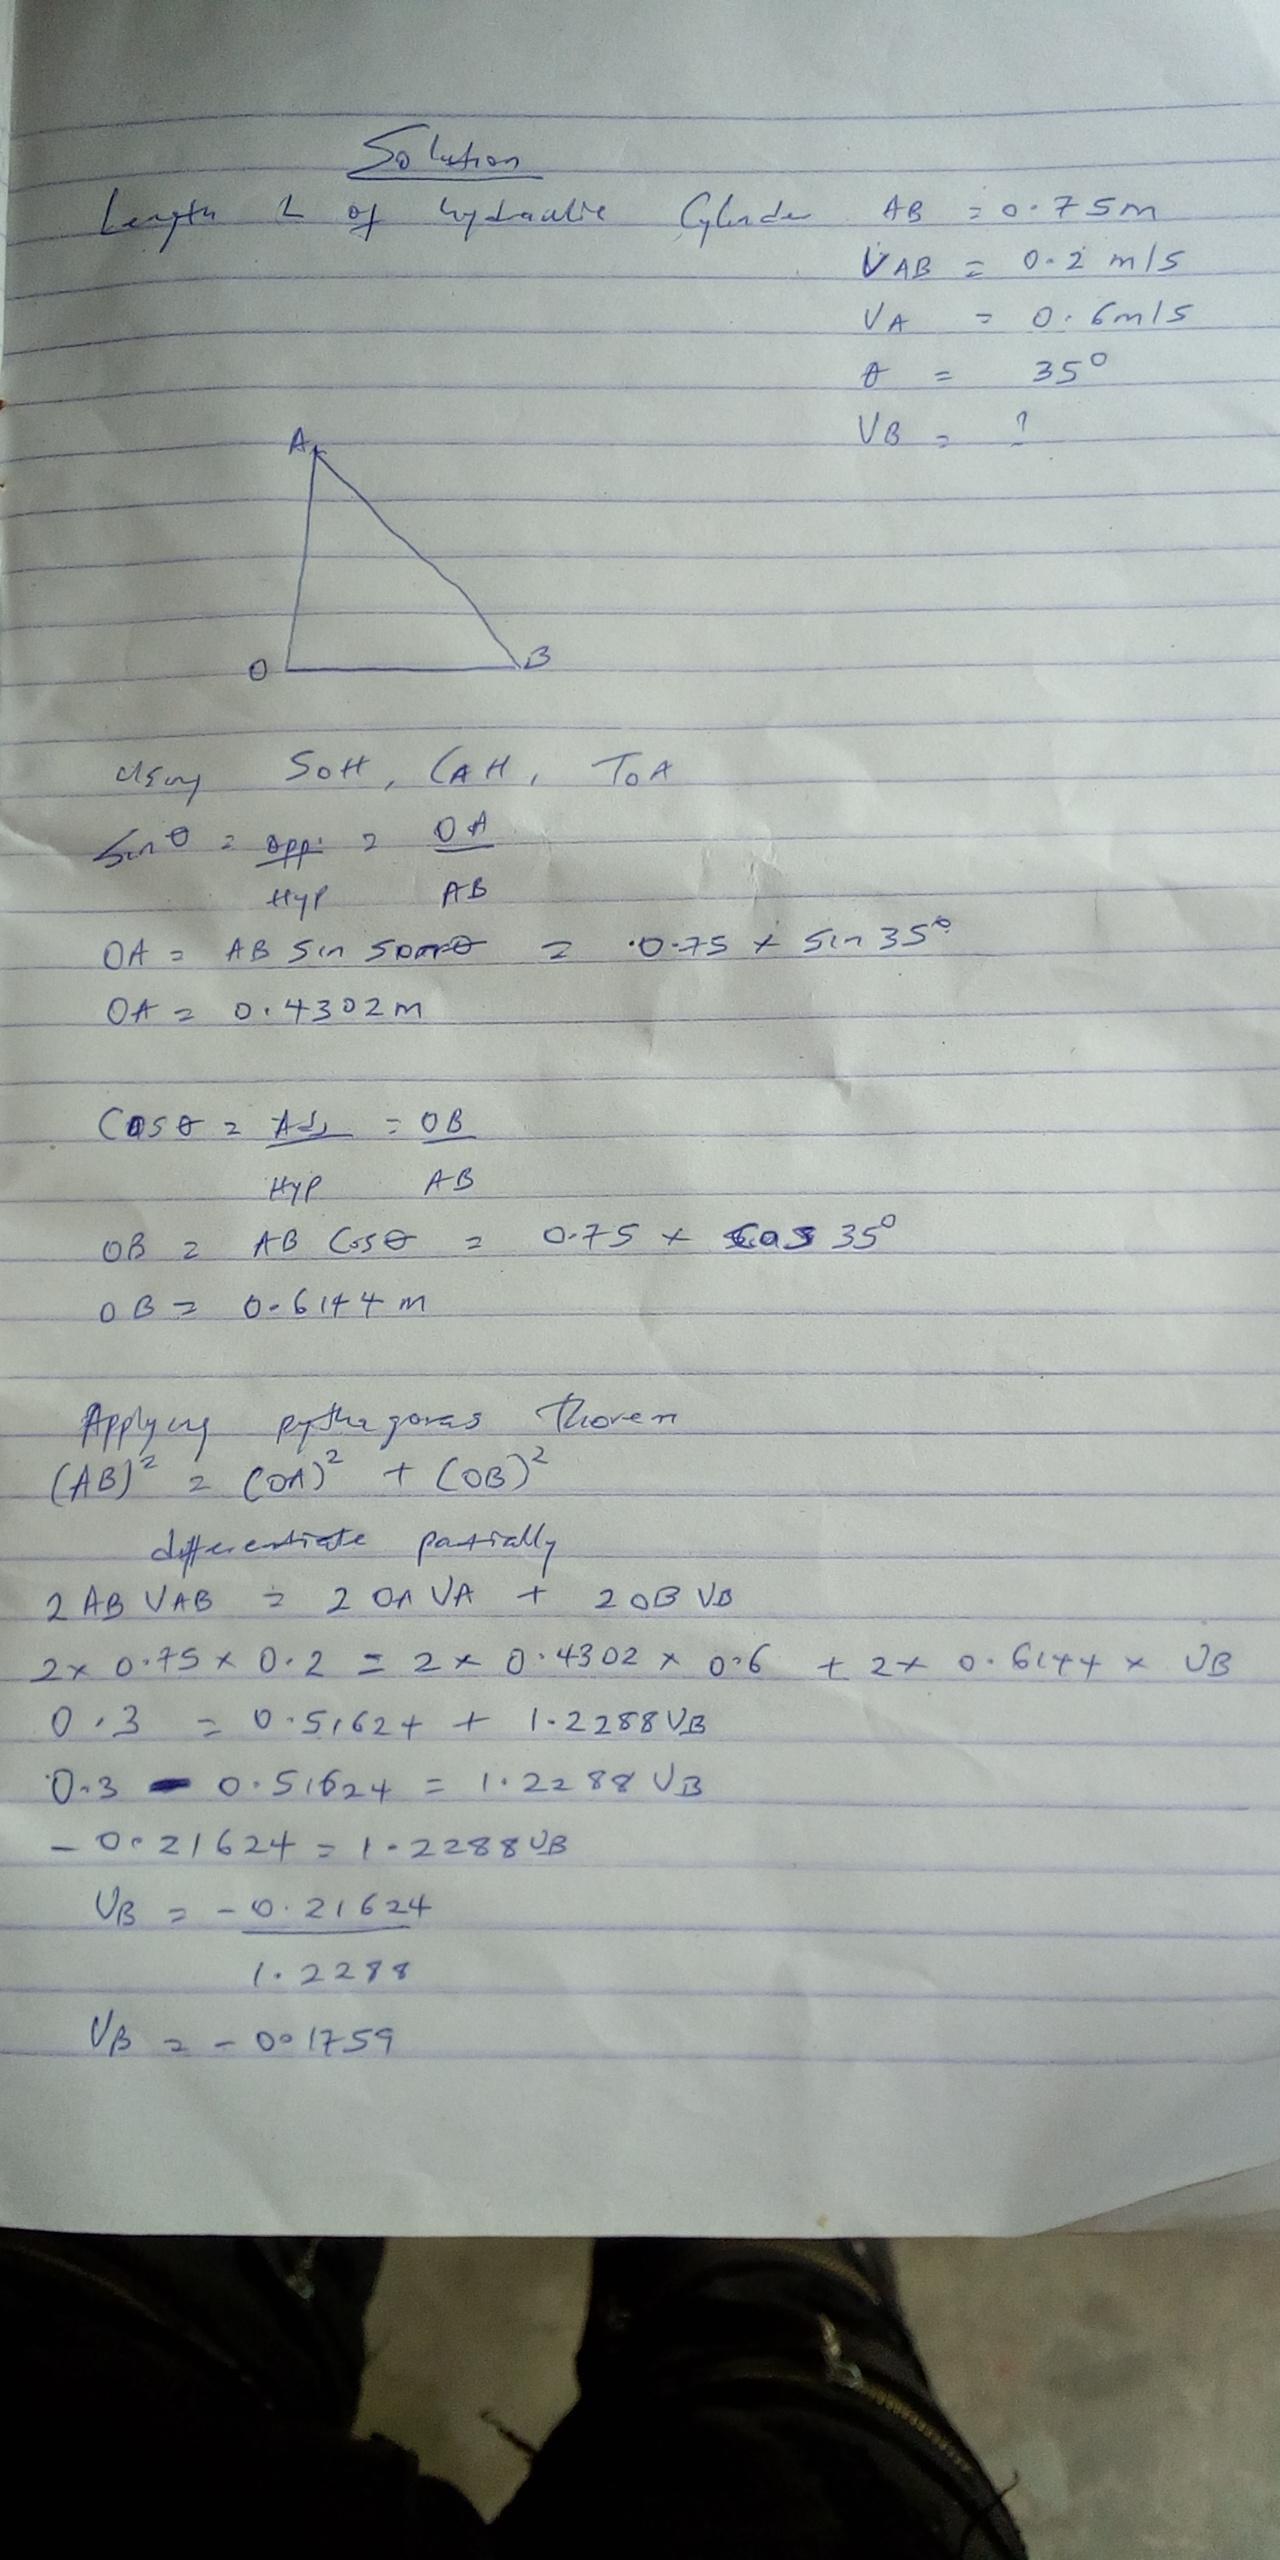 Solution
Length L of hydraulic Cylinder AB = 0.75m
VAB = 0.2 m/s
VA = 0.6m/s
θ = 35°
VB = ?
A
O B
Using SOH, CAH, TOA
Sinθ = opp = OA
Hyp AB
OA = AB Sin = 0.75 × Sin 35°
OA = 0.4302m
Cosθ = Adj = OB
Hyp AB
OB = AB Cosθ = 0.75 × Cos 35°
OB = 0.6144m
Applying pythagoras thorem
(AB)² = (OA)² + (OB)²
differentiate partially
2 AB VAB = 2 OA VA + 2 OB VB
2× 0.75 × 0.2 = 2× 0.4302 × 0.6 + 2× 0.6144 × VB
0.3 = 0.51624 + 1.2288VB
0.3 - 0.51624 = 1.2288 VB
- 0.21624 = 1.2288VB
VB = - 0.21624
1.2288
VB = - 0.1759